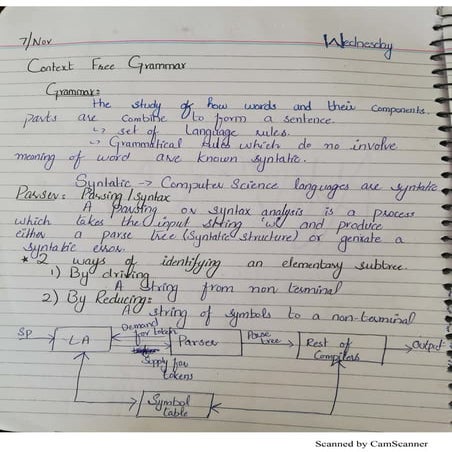 7/Nov Wednesday
Context Free Grammar
Grammar:
the study of how words and their components
parts are combine to form a sentence.
↳ set of language rules.
↳ Grammatical rules which do no involve
meaning of word are known syntatic.
Syntatic → Computer Science languages are syntatic
Parser: Parsing/syntax
A parsing or syntax analysis is a process
which takes the input string w and produce
either a parse tree (Syntatic structure) or genrate a
syntatic error.
* 2 ways of identifying an elementary subtree.
1) By driving
A string from non terminal
2) By Reducing:
A string of symbols to a non-terminal
SP
LA
Demand
for token
Parser
Parse
tree
Rest of
Compilers
Output
Supply for
tokens
Symbol
table
Scanned by CamScanner